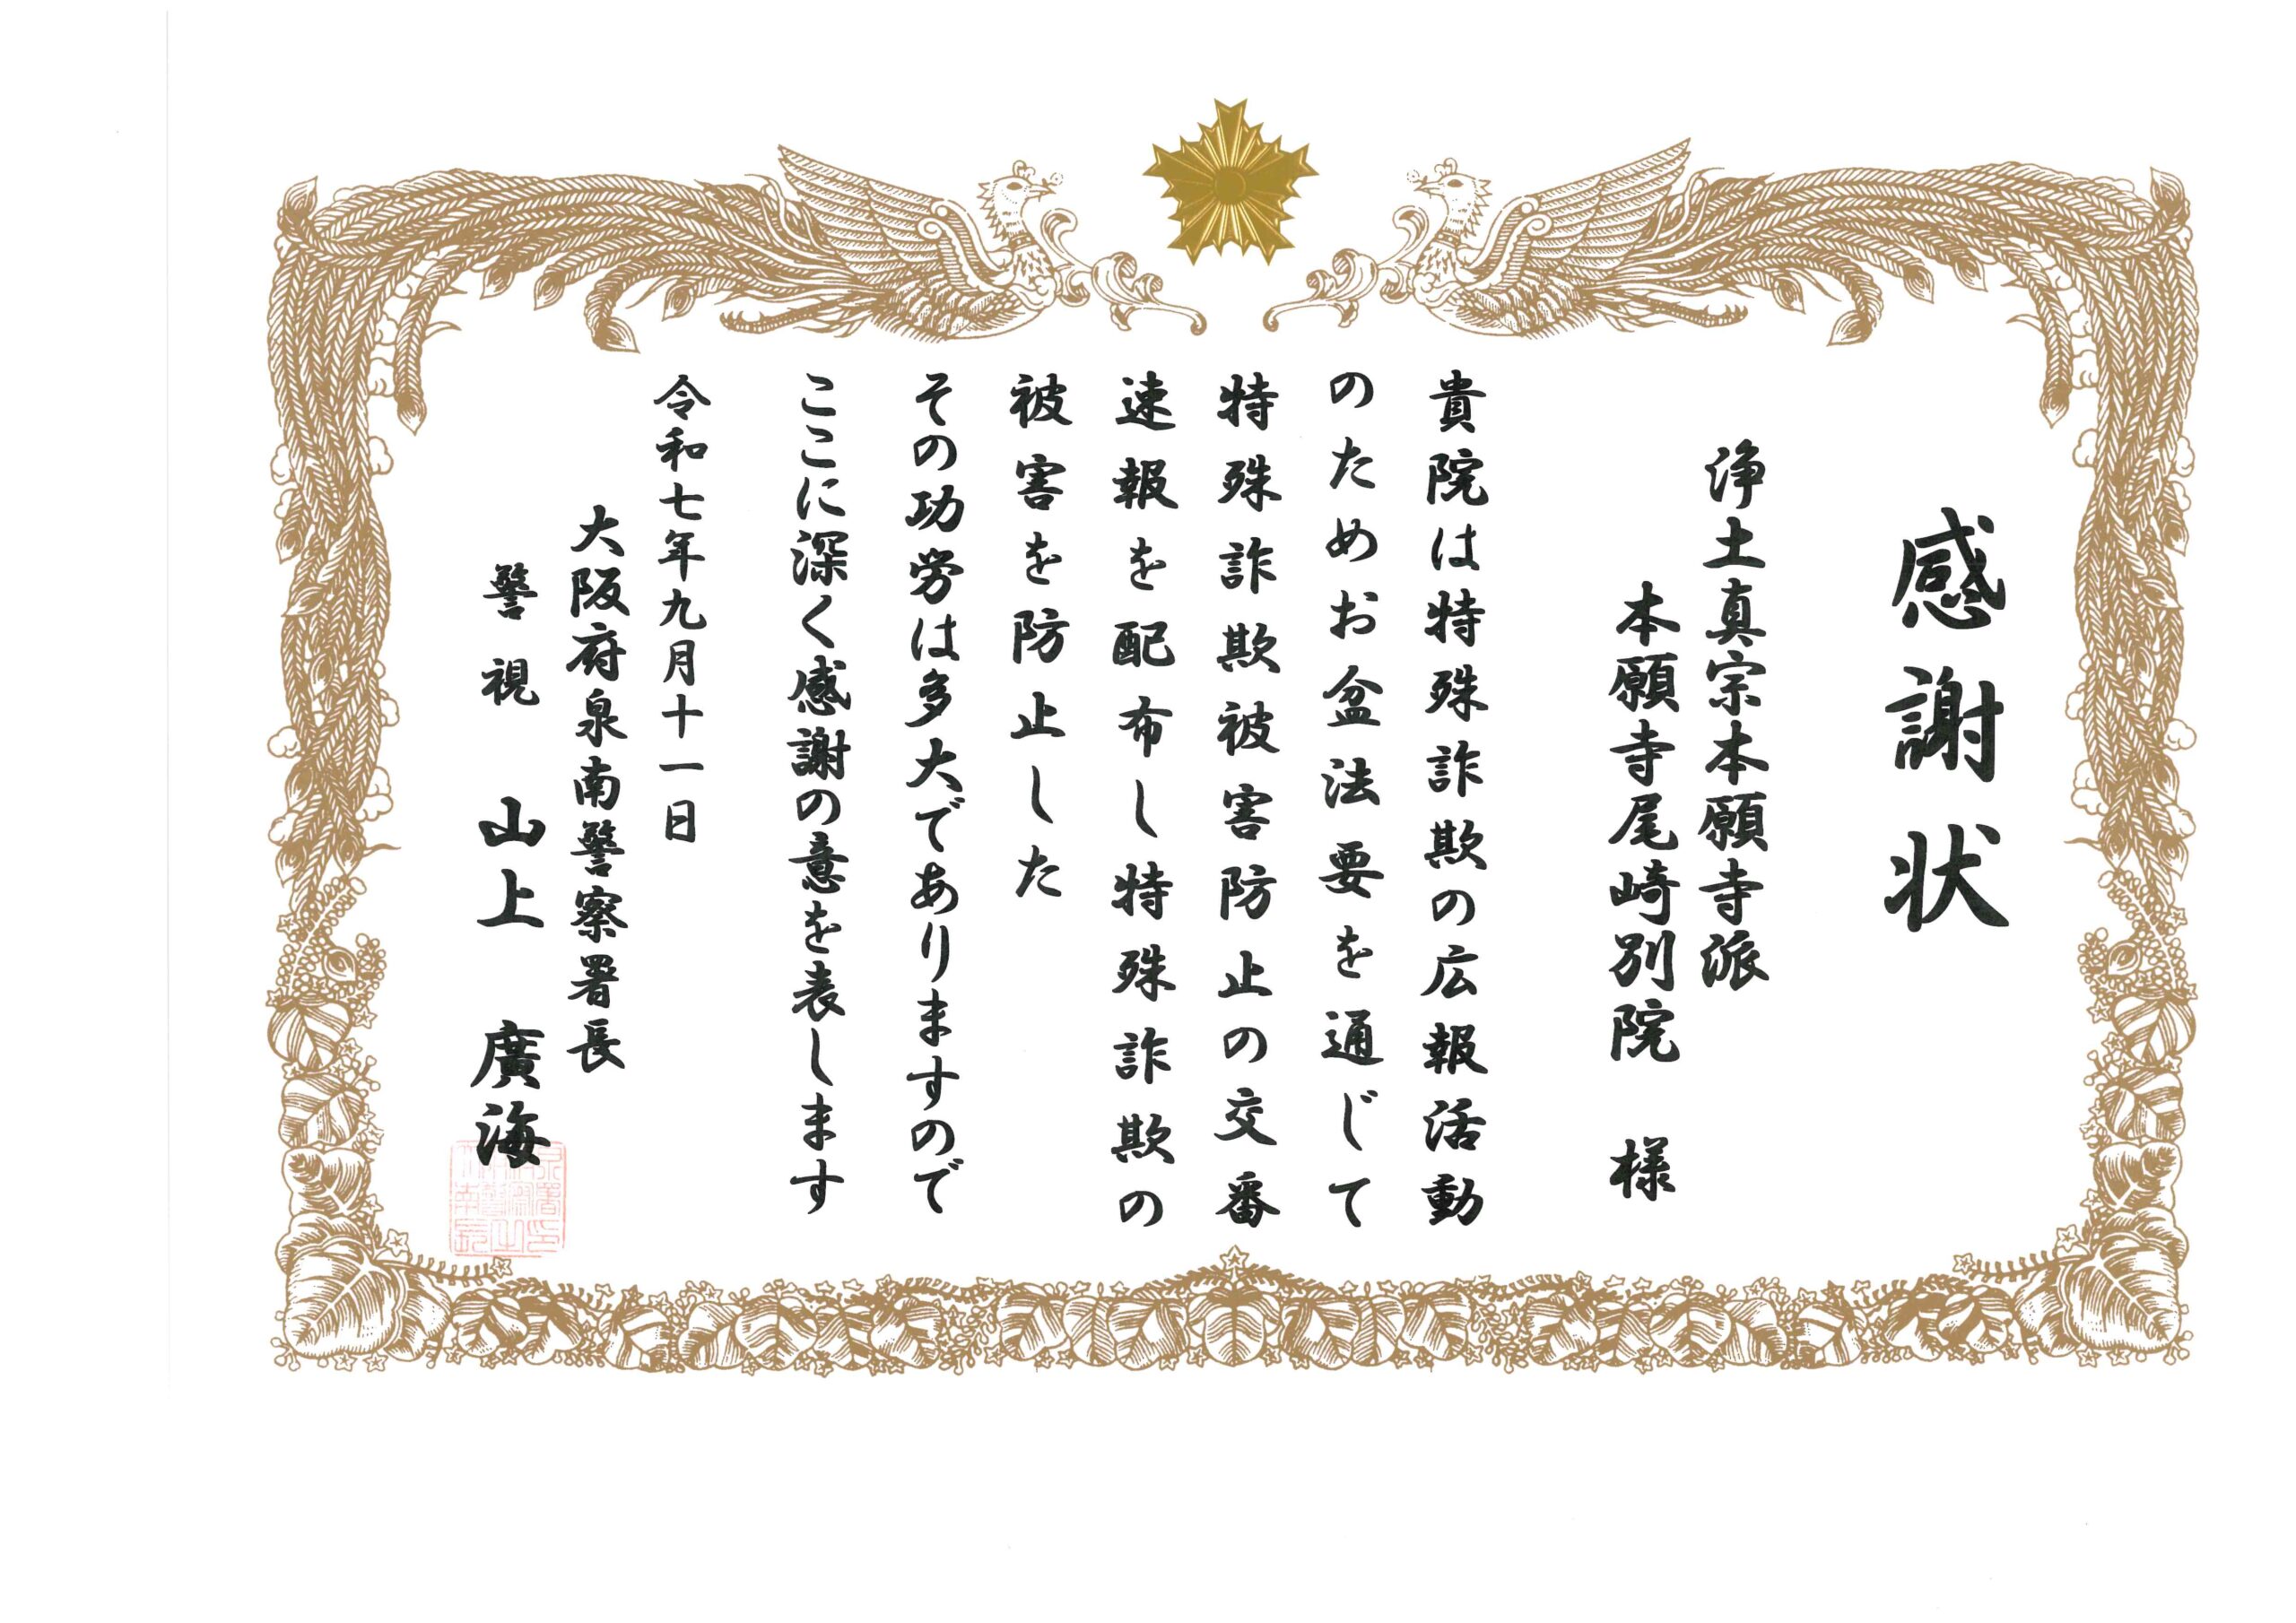 感謝状
浄土真宗本願寺派
本願寺尾崎別院 様
貴院は特殊詐欺の広報活動
のためお盆法要を通じて
特殊詐欺被害防止の交番
速報を配布し特殊詐欺の
被害を防止した
その功労は多大でありますので
ここに深く感謝の意を表します
令和七年九月十一日
大阪府泉南警察署長
警視 山上 廣海